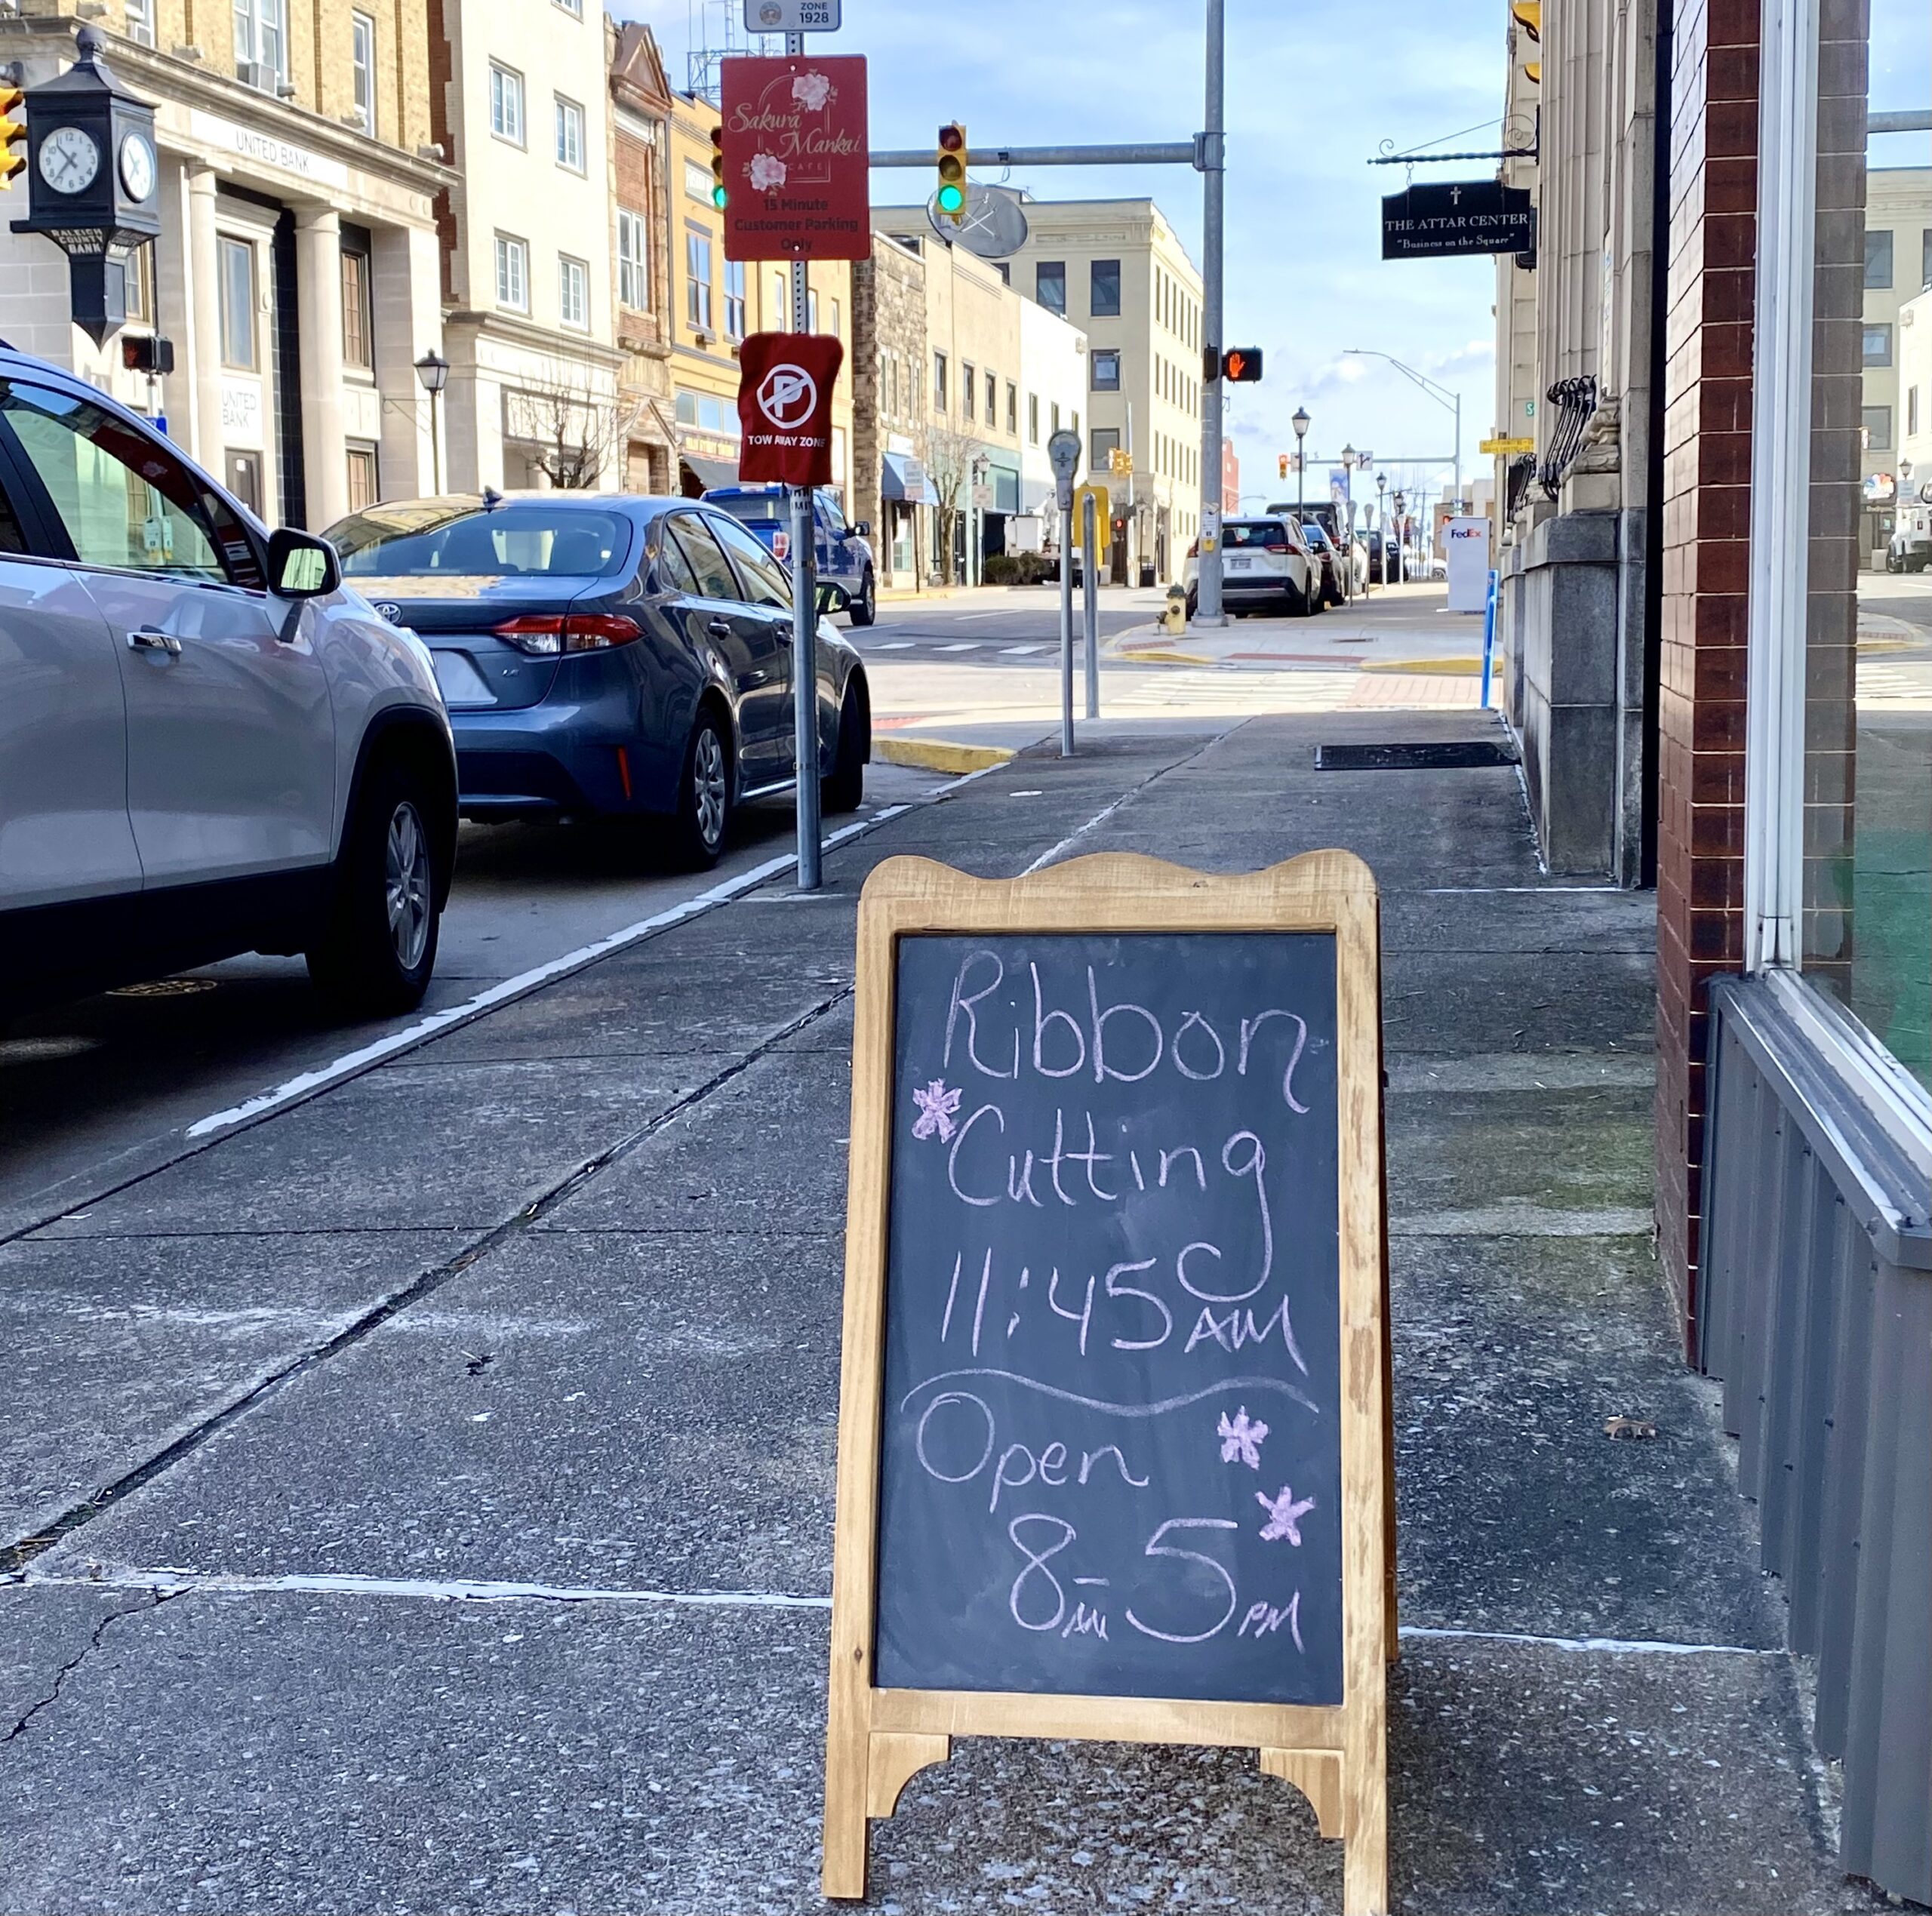 ZONE
1928
Sakura
Mankai
CAFE
15 Minute
Customer Parking
Only
TOW AWAY ZONE
UNITED BANK
UNITED
BANK
RALEIGH
COUNTY
BANK
THE ATTAR CENTER
"Business on the Square"
FedEx
LE
Ribbon
Cutting
11:45 AM
Open
8AM-5PM